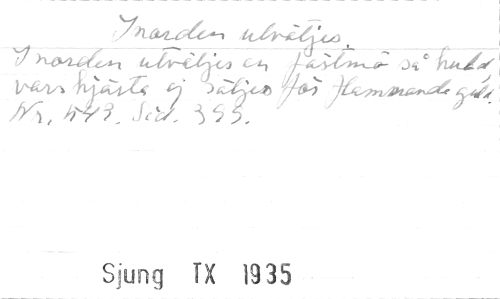 I norden utväljes.
I norden utväljes en fästmö så huld,
vars hjärta ej säljes för flammande guld.
Nr. 543. Sid. 399.
Sjung TX 1935